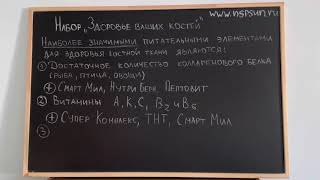 www.nspsun.ru
Набор "Здоровье ваших костей"
Наиболее значимыми питательными элементами
для здоровья костной ткани являются:
① Достаточное количество коллагенового белка
(рыба, птица, овощи)
⊕ Смарт Мил, Нутри Берн, Пептовит
② Витамины А, К, С, В2 и В6
⊕ Супер Комплекс, ТНТ, Смарт Мил
③